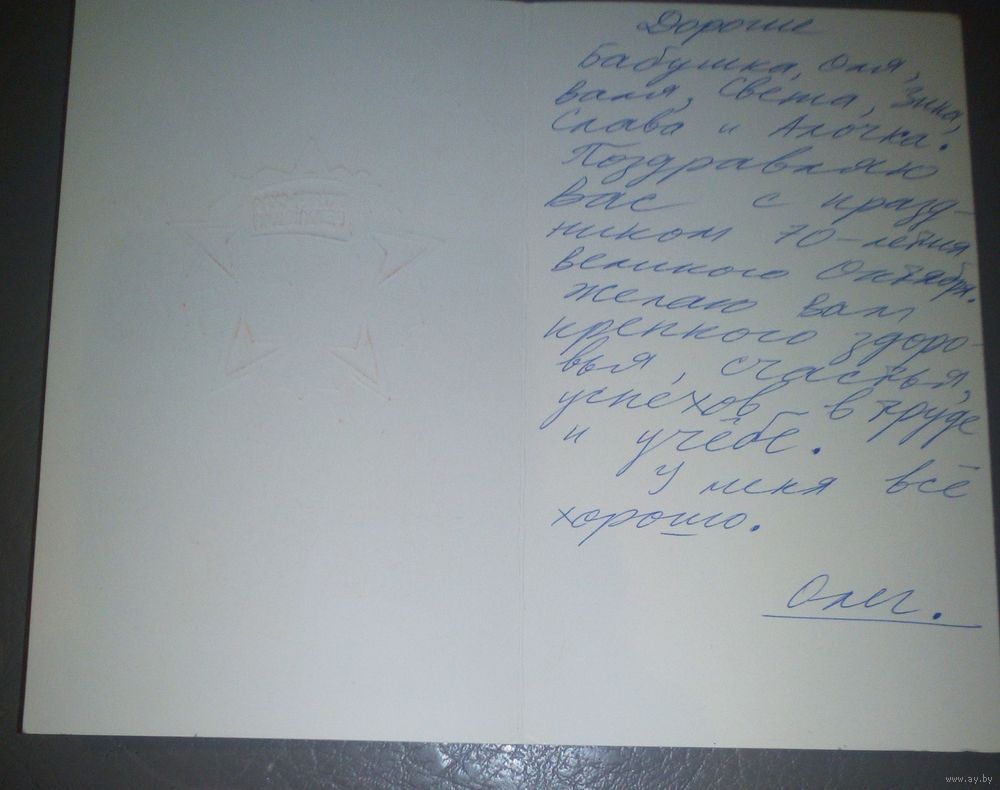 Дорогие
Бабушка, Оля,
Валя, Света, Зина,
Слава и Алочка.
Поздравляю
Вас с празд-
ником 70-летия
великого Октября.
Желаю вам
крепкого здоро-
вья, счастья,
успехов в труде
и учёбе.
У меня всё
хорошо.
Олег.
www.ay.by